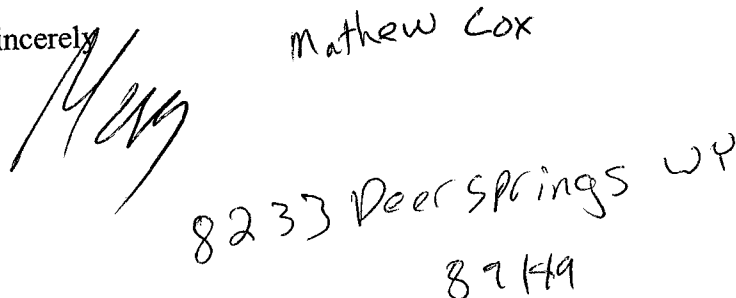 incerely
Mathew Cox
8233 Deer springs WY
89149